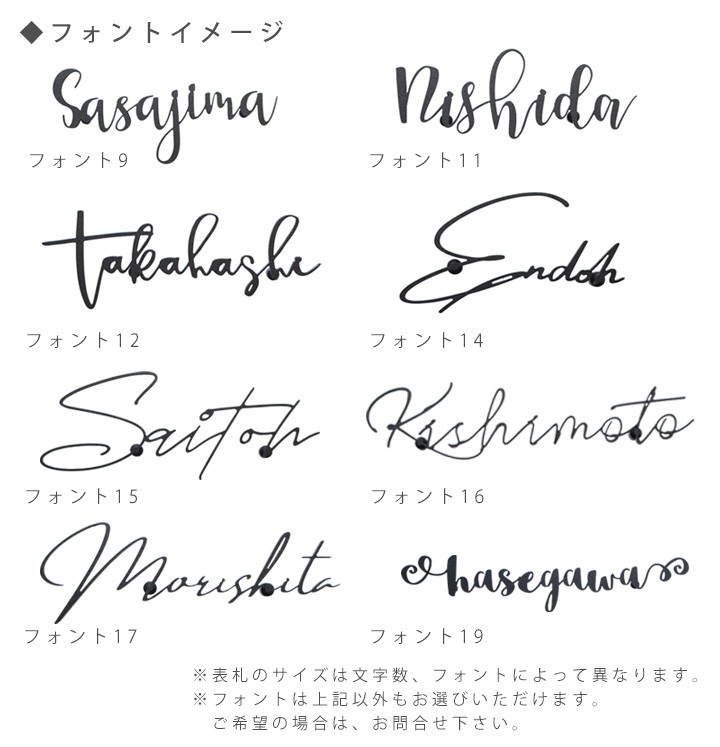 ◆フォントイメージ
Sasajima
フォント9
Nishida
フォント11
Takahashi
フォント12
Endoh
フォント14
Saitoh
フォント15
Kishimoto
フォント16
Morishita
フォント17
hasegawa
フォント19
※表札のサイズは文字数、フォントによって異なります。
※フォントは上記以外もお選びいただけます。
ご希望の場合は、お問合せ下さい。